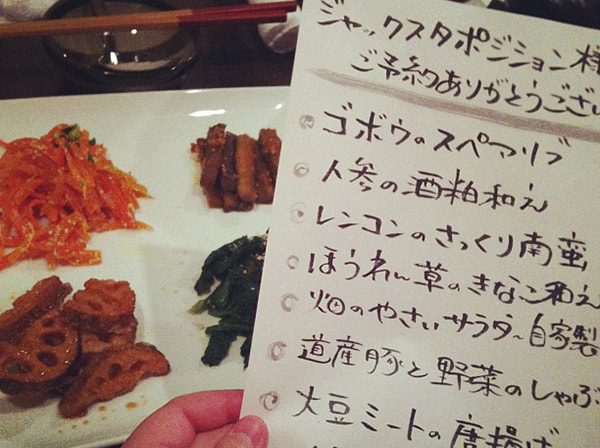 ジャックスタポジション様
ご予約ありがとうござい
ゴボウのスペアリブ
人参の酒粕和え
レンコンのさっくり南蛮
ほうれん草のきなこ和え
畑のやさいサラダ~自家製
道産豚と野菜のしゃぶ
大豆ミートの唐揚げ